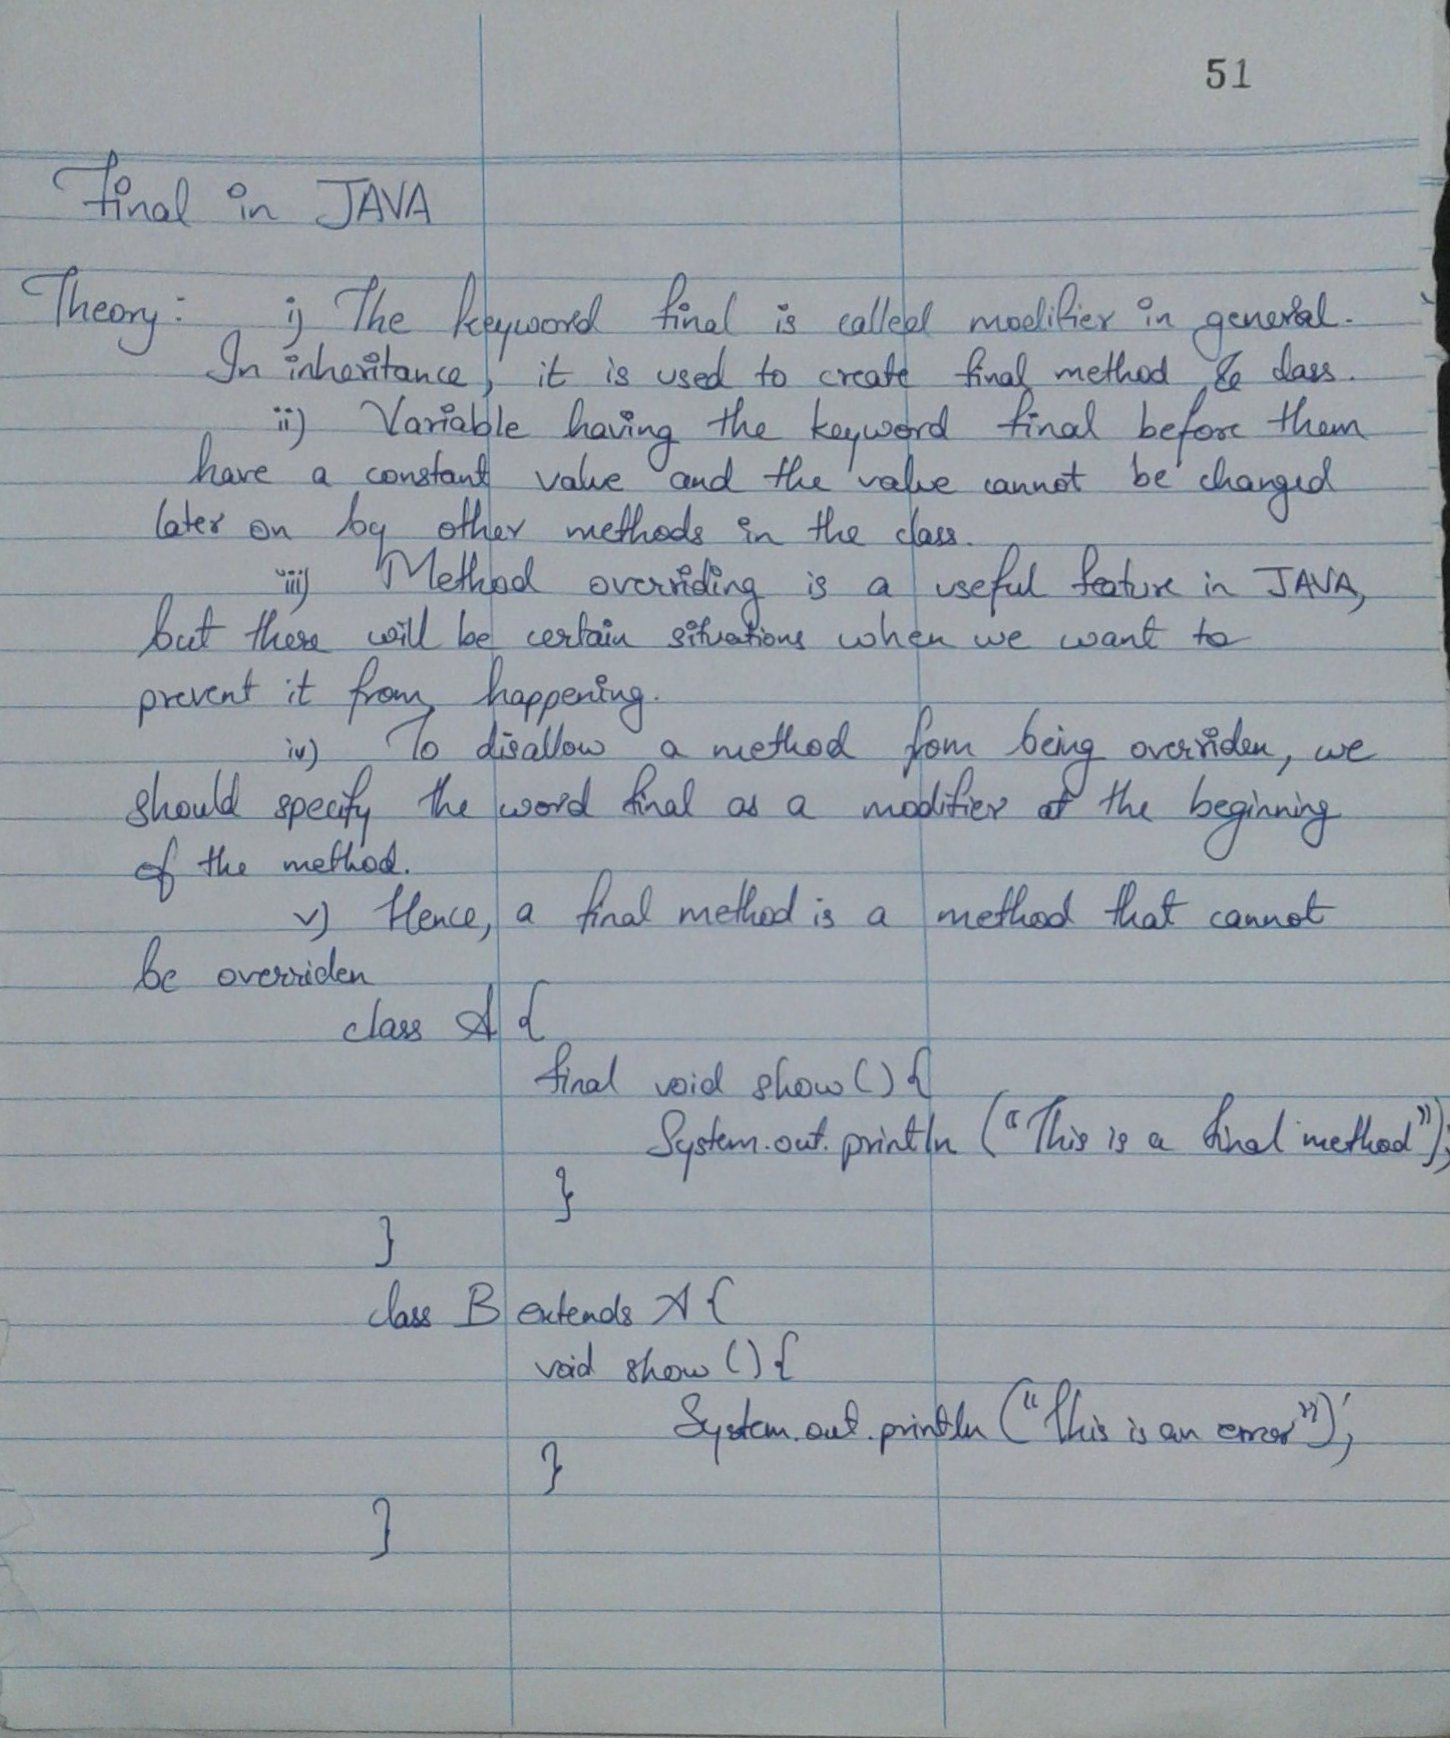 51
Final in JAVA
Theory: i) The keyword final is called modifier in general.
In inheritance, it is used to create final method & class.
ii) Variable having the keyword final before them
have a constant value and the value cannot be changed
later on by other methods in the class.
iii) Method overriding is a useful feature in JAVA,
but there will be certain situations when we want to
prevent it from happening.
iv) To disallow a method from being overriden, we
should specify the word final as a modifier at the beginning
of the method.
v) Hence, a final method is a method that cannot
be overriden
class A {
final void show () {
System.out.println ("This is a final method");
}
}
class B extends A {
void show () {
System.out.println ("This is an error");
}
}